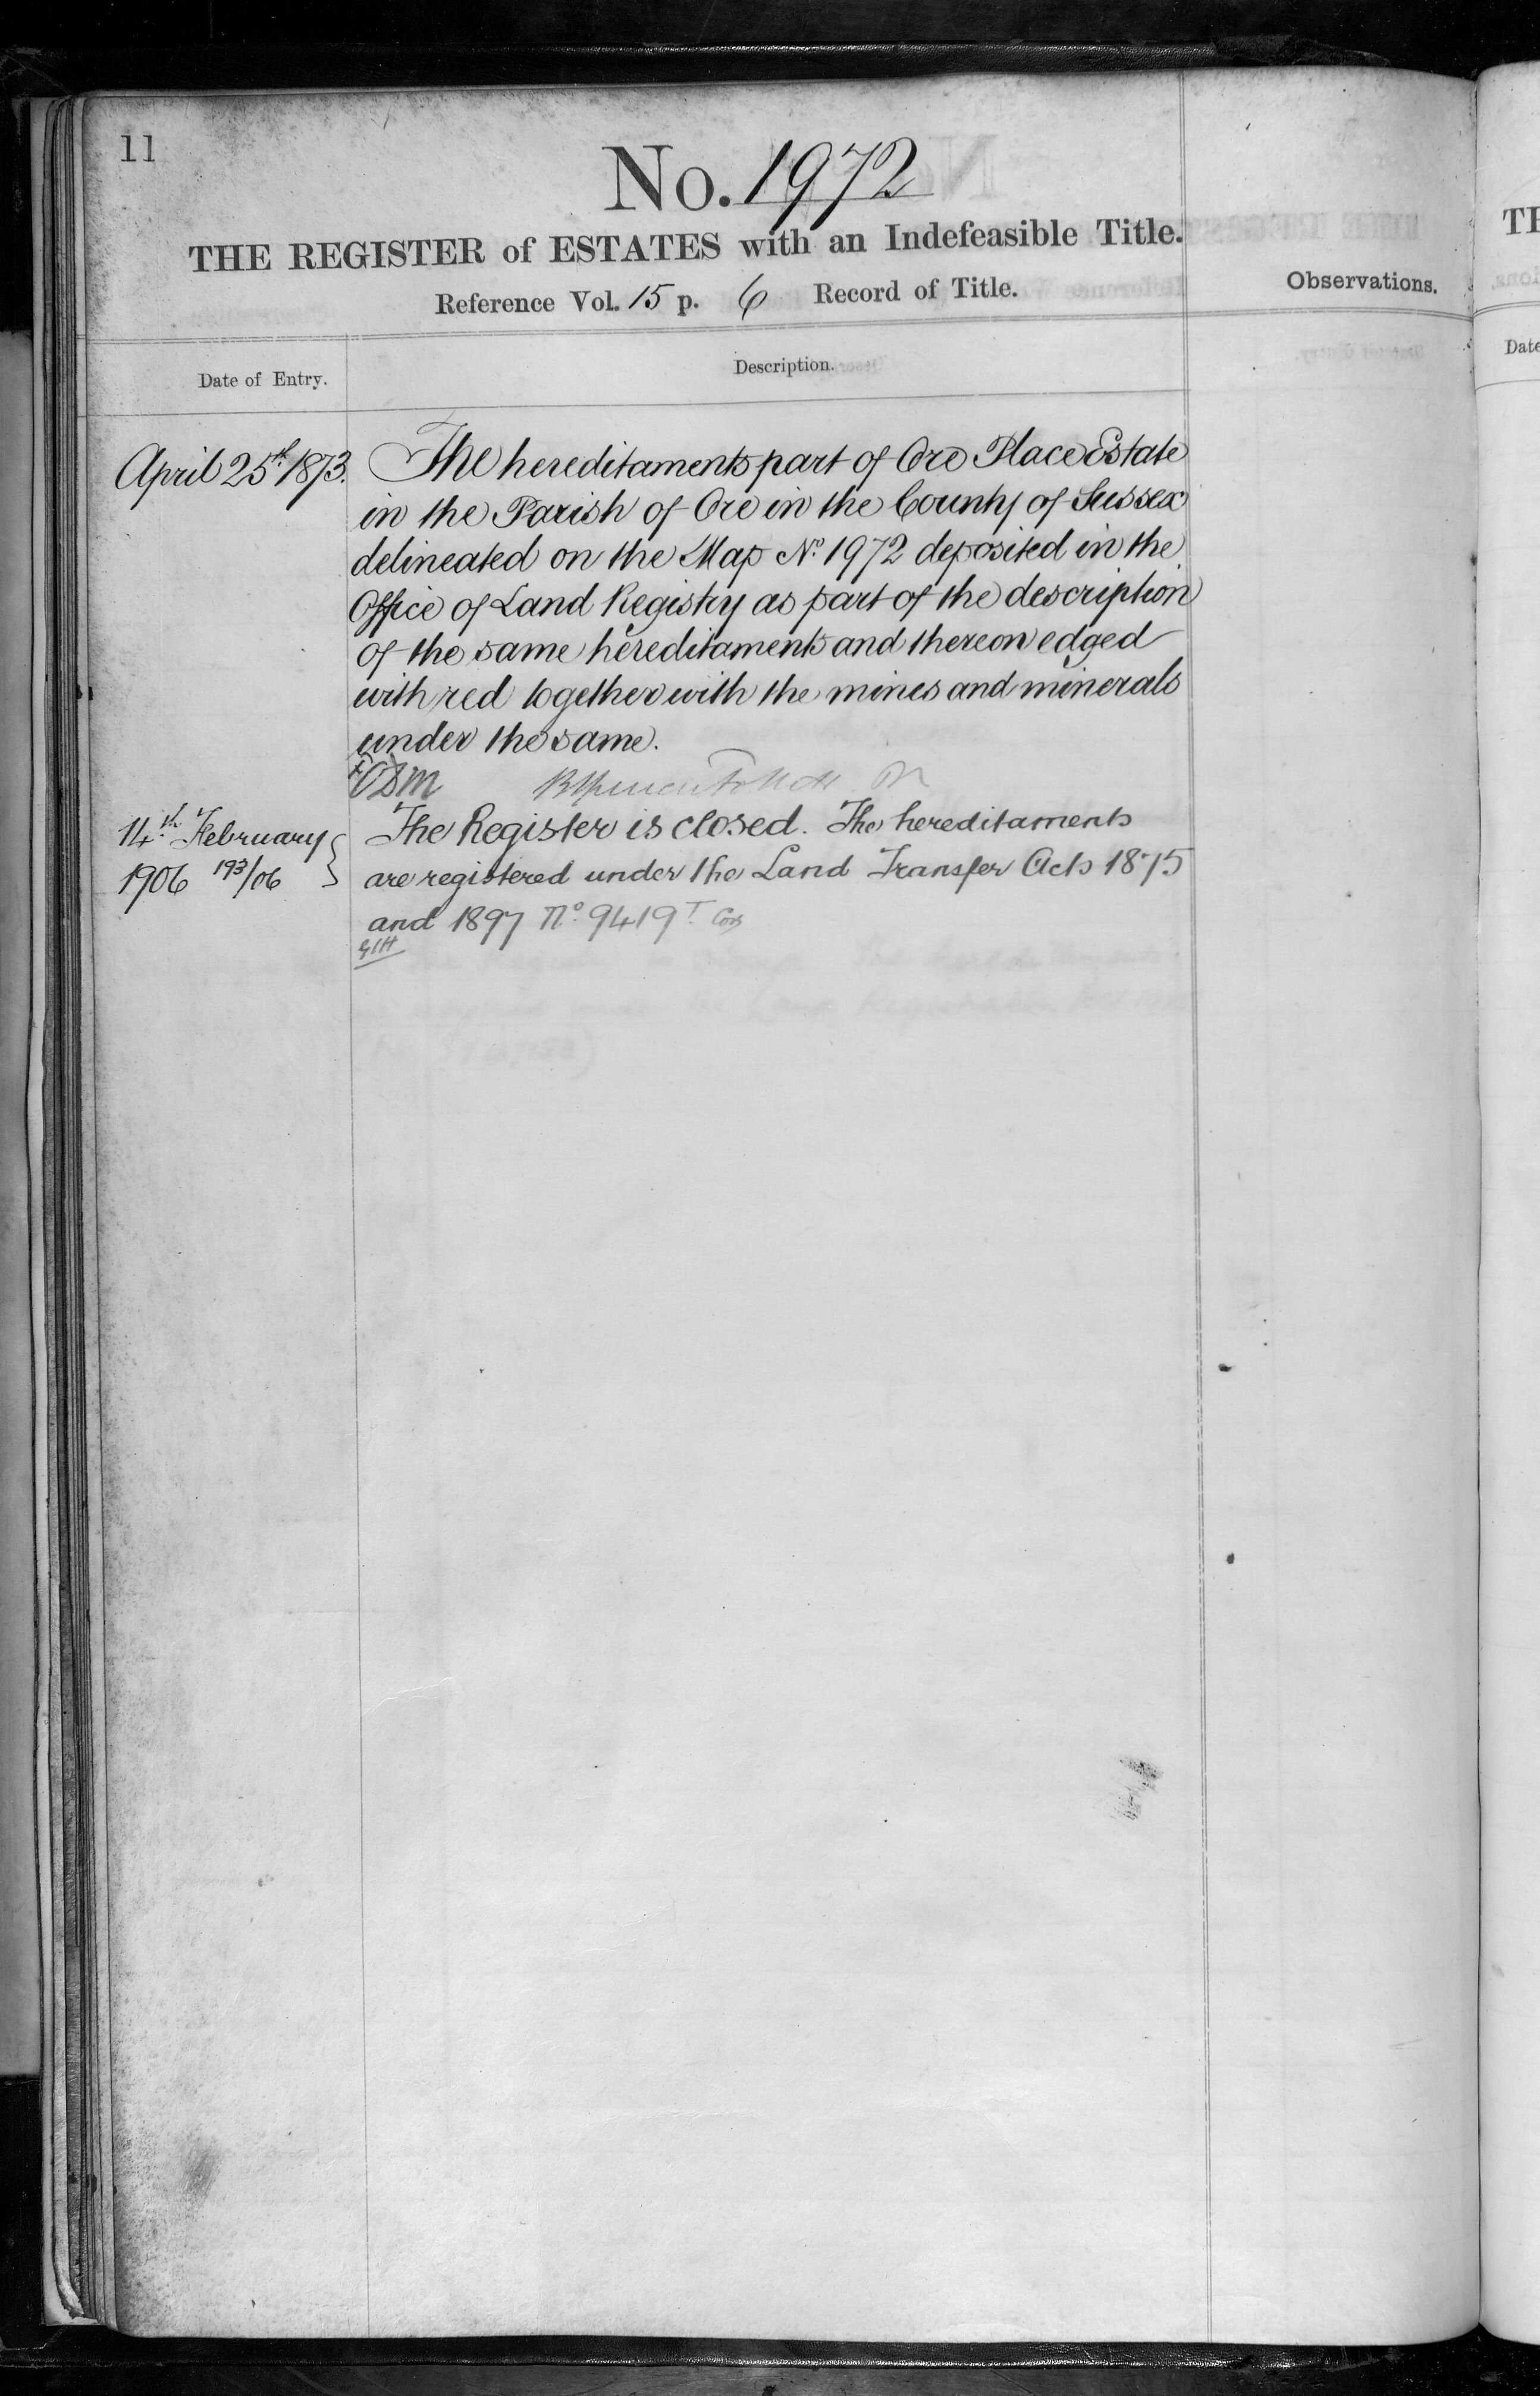 11
No. 1972
THE REGISTER of ESTATES with an Indefeasible Title.
Reference Vol. 15 p. 6 Record of Title.
Observations.
Date of Entry.
Description.
April 25th 1873.
The hereditaments part of Ore Place Estate
in the Parish of Ore in the County of Sussex
delineated on the Map No. 1972 deposited in the
Office of Land Registry as part of the description
of the same hereditaments and thereon edged
with red together with the mines and minerals
under the same.
14th February
1906 193/06
The Register is closed. The hereditaments
are registered under the Land Transfer Acts 1875
and 1897 No. 9419T
TH
Date